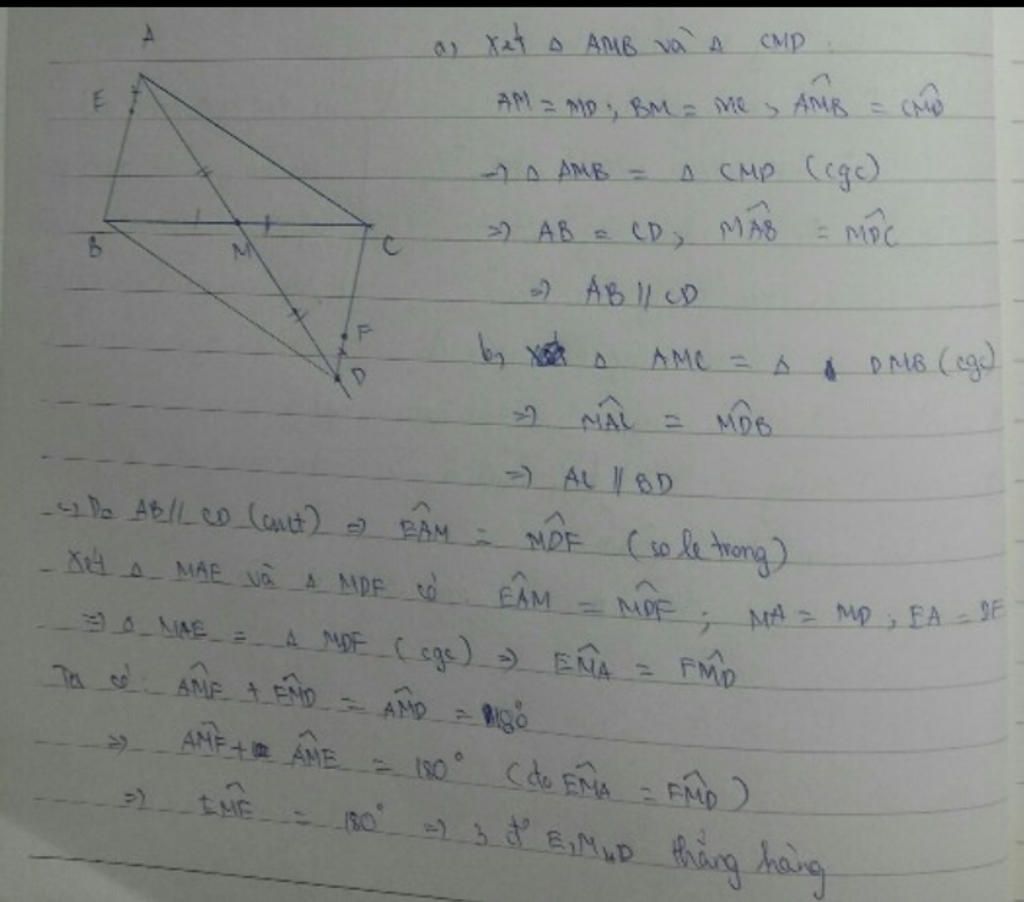 A
E
B
M
C
F
D
a, Xét Δ AMB và Δ CMD
AM = MD ; BM = MC ; AMB^ = CMD^
=> Δ AMB = Δ CMD (cgc)
=> AB = CD ; MAB^ = MDC^
=> AB // CD
b, Δ AMC = Δ DMB (cgc)
=> MAC^ = MDB^
=> AC // BD
c, Do AB // CD (cmt) => EAM^ = MDF^ (so le trong)
Xét Δ MAE và Δ MDF có EAM^ = MDF^ ; MA = MD ; EA = DF
=> Δ MAE = Δ MDF (cgc) => EMA^ = FMD^
Ta có: AMF^ + FMD^ = AMD^ = 180°
=> AMF^ + AME^ = 180° (do EMA^ = FMD^)
=> EMF^ = 180° => 3 đ' E, M, D thẳng hàng